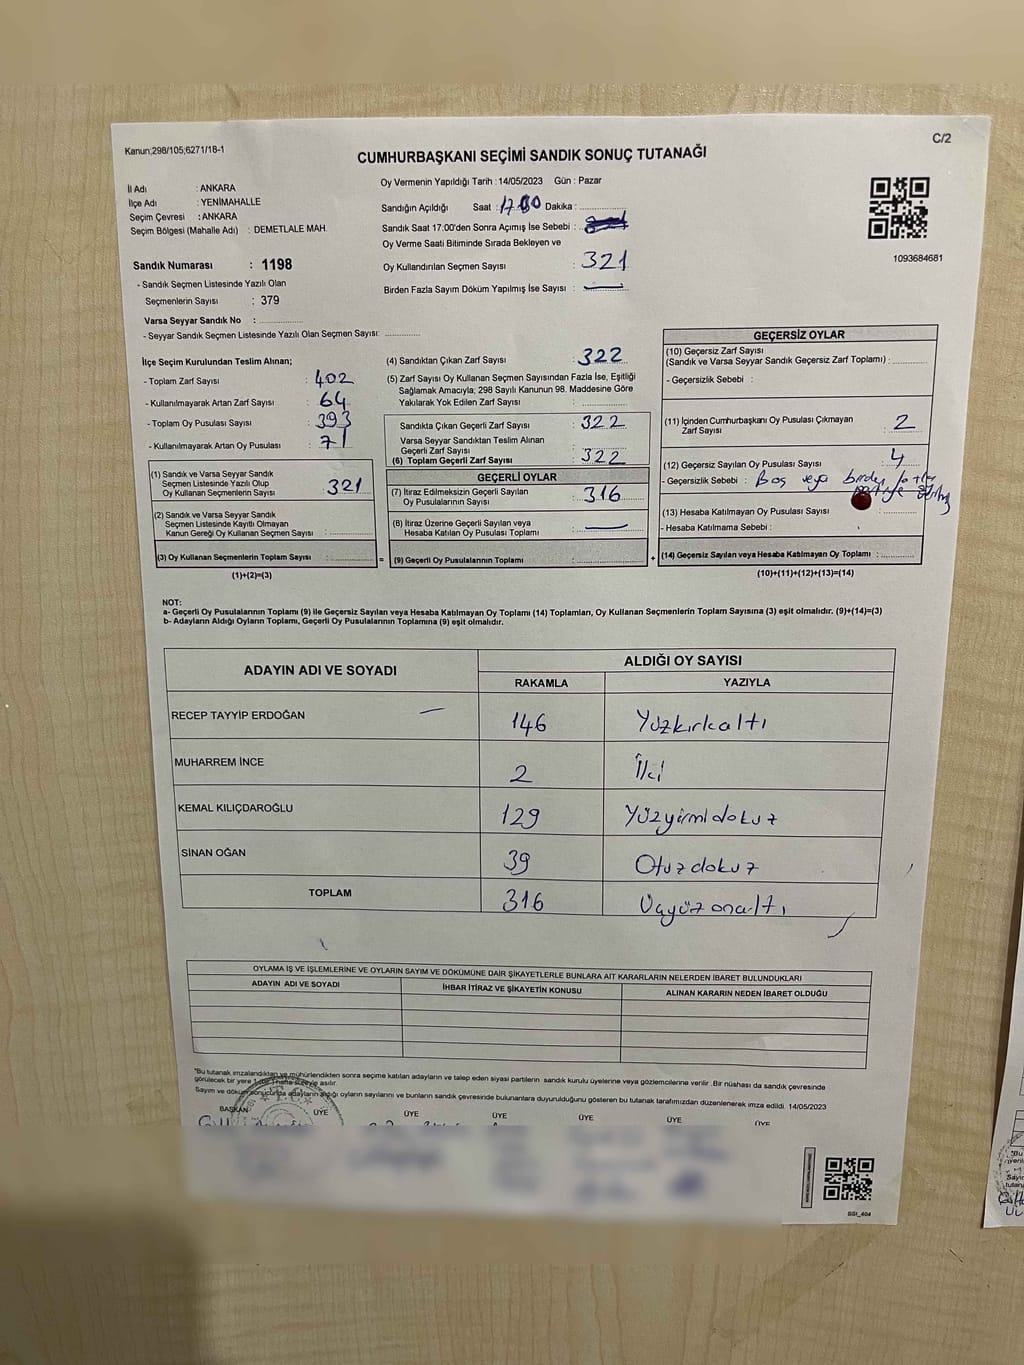 Kanun;298/105;6271/18-1
C/2
CUMHURBAŞKANI SEÇİMİ SANDIK SONUÇ TUTANAĞI
İl Adı : ANKARA
İlçe Adı : YENİMAHALLE
Seçim Çevresi : ANKARA
Seçim Bölgesi (Mahalle Adı) : DEMETLALE MAH.
Sandık Numarası : 1198
- Sandık Seçmen Listesinde Yazılı Olan
Seçmenlerin Sayısı : 379
Varsa Seyyar Sandık No :
- Seyyar Sandık Seçmen Listesinde Yazılı Olan Seçmen Sayısı:
Oy Vermenin Yapıldığı Tarih : 14/05/2023 Gün : Pazar
Sandığın Açıldığı Saat : Dakika :
Sandık Saat 17:00'den Sonra Açımış İse Sebebi :
Oy Verme Saati Bitiminde Sırada Bekleyen ve
Oy Kullandırılan Seçmen Sayısı : 321
Birden Fazla Sayım Döküm Yapılmış İse Sayısı : —
1093684681
İlçe Seçim Kurulundan Teslim Alınan;
- Toplam Zarf Sayısı : 402
- Kullanılmayarak Artan Zarf Sayısı : 64
- Toplam Oy Pusulası Sayısı : 393
- Kullanılmayarak Artan Oy Pusulası : 71
(1) Sandık ve Varsa Seyyar Sandık
Seçmen Listesinde Yazılı Olup
Oy Kullanan Seçmenlerin Sayısı : 321
(2) Sandık ve Varsa Seyyar Sandık
Seçmen Listesinde Kayıtlı Olmayan
Kanun Gereği Oy Kullanan Seçmen Sayısı :
(3) Oy Kullanan Seçmenlerin Toplam Sayısı :
(1)+(2)=(3)
(4) Sandıktan Çıkan Zarf Sayısı : 322
(5) Zarf Sayısı Oy Kullanan Seçmen Sayısından Fazla İse, Eşitliği
Sağlamak Amacıyla; 298 Sayılı Kanunun 98. Maddesine Göre
Yakılarak Yok Edilen Zarf Sayısı :
Sandıkta Çıkan Geçerli Zarf Sayısı : 322
Varsa Seyyar Sandıktan Teslim Alınan
Geçerli Zarf Sayısı :
(6) Toplam Geçerli Zarf Sayısı : 322
GEÇERLİ OYLAR
(7) İtiraz Edilmeksizin Geçerli Sayılan
Oy Pusulalarının Sayısı : 316
(8) İtiraz Üzerine Geçerli Sayılan veya
Hesaba Katılan Oy Pusulası Toplamı : —
= (9) Geçerli Oy Pusulalarının Toplamı : +
GEÇERSİZ OYLAR
(10) Geçersiz Zarf Sayısı
(Sandık ve Varsa Seyyar Sandık Geçersiz Zarf Toplamı) :
- Geçersizlik Sebebi :
(11) İçinden Cumhurbaşkanı Oy Pusulası Çıkmayan
Zarf Sayısı : 2
(12) Geçersiz Sayılan Oy Pusulası Sayısı : 4
- Geçersizlik Sebebi : Boş veya birden
(13) Hesaba Katılmayan Oy Pusulası Sayısı :
- Hesaba Katılmama Sebebi :
(14) Geçersiz Sayılan veya Hesaba Katılmayan Oy Toplamı :
(10)+(11)+(12)+(13)=(14)
NOT:
a- Geçerli Oy Pusulalarının Toplamı (9) ile Geçersiz Sayılan veya Hesaba Katılmayan Oy Toplamı (14) Toplamları, Oy Kullanan Seçmenlerin Toplam Sayısına (3) eşit olmalıdır. (9)+(14)=(3)
b- Adayların Aldığı Oyların Toplamı, Geçerli Oy Pusulalarının Toplamına (9) eşit olmalıdır.
ADAYIN ADI VE SOYADI
ALDIĞI OY SAYISI
RAKAMLA YAZIYLA
RECEP TAYYİP ERDOĞAN — 146 Yüzkırkaltı
MUHARREM İNCE 2 İki
KEMAL KILIÇDAROĞLU 129 Yüzyirmidokuz
SİNAN OĞAN 39 Otuzdokuz
TOPLAM 316 Üçyüzonaltı
OYLAMA İŞ VE İŞLEMLERİNE VE OYLARIN SAYIM VE DÖKÜMÜNE DAİR ŞİKAYETLERLE BUNLARA AİT KARARLARIN NELERDEN İBARET BULUNDUKLARI
ADAYIN ADI VE SOYADI İHBAR İTİRAZ VE ŞİKAYETİN KONUSU ALINAN KARARIN NEDEN İBARET OLDUĞU
"Bu tutanak imzalandıktan ve mühürlendikten sonra seçime katılan adayların ve talep eden siyasi partilerin sandık kurulu üyelerine veya gözlemcilerine verilir. Bir nüshası da sandık çevresinde
görülecek bir yere asılır.
Sayım ve döküm sonucunda adayların aldığı oyların sayılarını ve bunların sandık çevresinde bulunanlara duyurulduğunu gösteren bu tutanak tarafımızdan düzenlenerek imza edildi. 14/05/2023
BAŞKAN ÜYE ÜYE ÜYE ÜYE ÜYE ÜYE
SSI_404